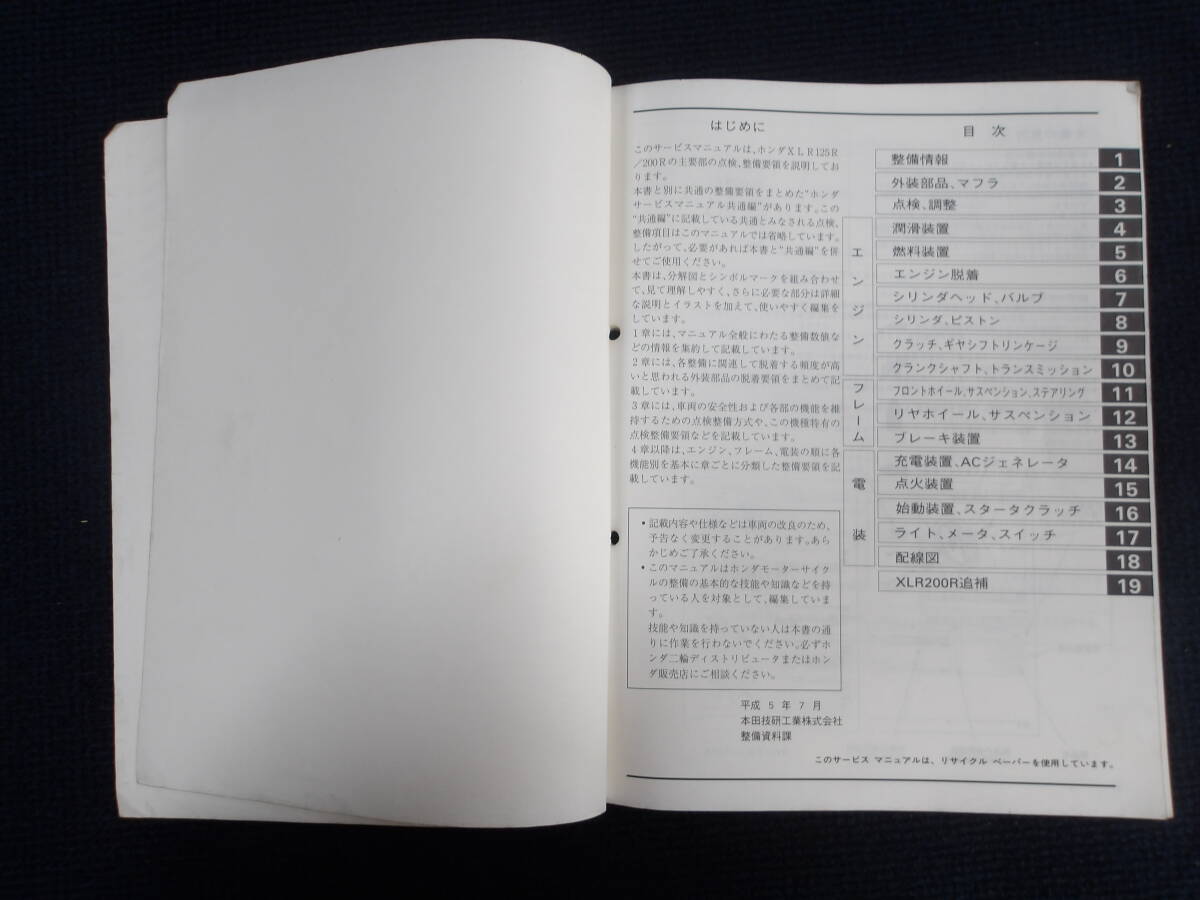 はじめに
このサービスマニュアルは、ホンダXLR125R
／200Rの主要部の点検、整備要領を説明してお
ります。
本書と別に共通の整備要領をまとめた“ホンダ
サービスマニュアル共通編”があります。この
“共通編”に記載している共通とみなされる点検、
整備項目はこのマニュアルでは省略しています。
したがって、必要があれば本書と“共通編”を併
せてご使用ください。
本書は、分解図とシンボルマークを組み合わせ
て、見て理解しやすく、さらに必要な部分は詳細
な説明とイラストを加えて、使いやすく編集を
しています。
1章には、マニュアル全般にわたる整備数値な
どの情報を集約して記載しています。
2章には、各整備に関連して脱着する頻度が高
いと思われる外装部品の脱着要領をまとめて記
載しています。
3章には、車両の安全性および各部の機能を維
持するための点検整備方式や、この機種特有の
点検整備要領などを記載しています。
4章以降は、エンジン、フレーム、電装の順に各
機能別を基本に章ごとに分類した整備要領を記
載しています。
• 記載内容や仕様などは車両の改良のため、
予告なく変更することがあります。あら
かじめご了承ください。
• このマニュアルはホンダモーターサイク
ルの整備の基本的な技能や知識などを持
っている人を対象として、編集していま
す。
技能や知識を持っていない人は本書の通
りに作業を行わないでください。必ずホ
ンダ二輪ディストリビュータまたはホン
ダ販売店にご相談ください。
平成 5 年 7 月
本田技研工業株式会社
整備資料課
目 次
整備情報 1
外装部品、マフラ 2
点検、調整 3
エンジン
潤滑装置 4
燃料装置 5
エンジン脱着 6
シリンダヘッド、バルブ 7
シリンダ、ピストン 8
クラッチ、ギヤシフトリンケージ 9
クランクシャフト、トランスミッション 10
フレーム
フロントホイール、サスペンション、ステアリング 11
リヤホイール、サスペンション 12
ブレーキ装置 13
電装
充電装置、ACジェネレータ 14
点火装置 15
始動装置、スタータクラッチ 16
ライト、メータ、スイッチ 17
配線図 18
XLR200R追補 19
このサービス マニュアルは、リサイクル ペーパーを使用しています。